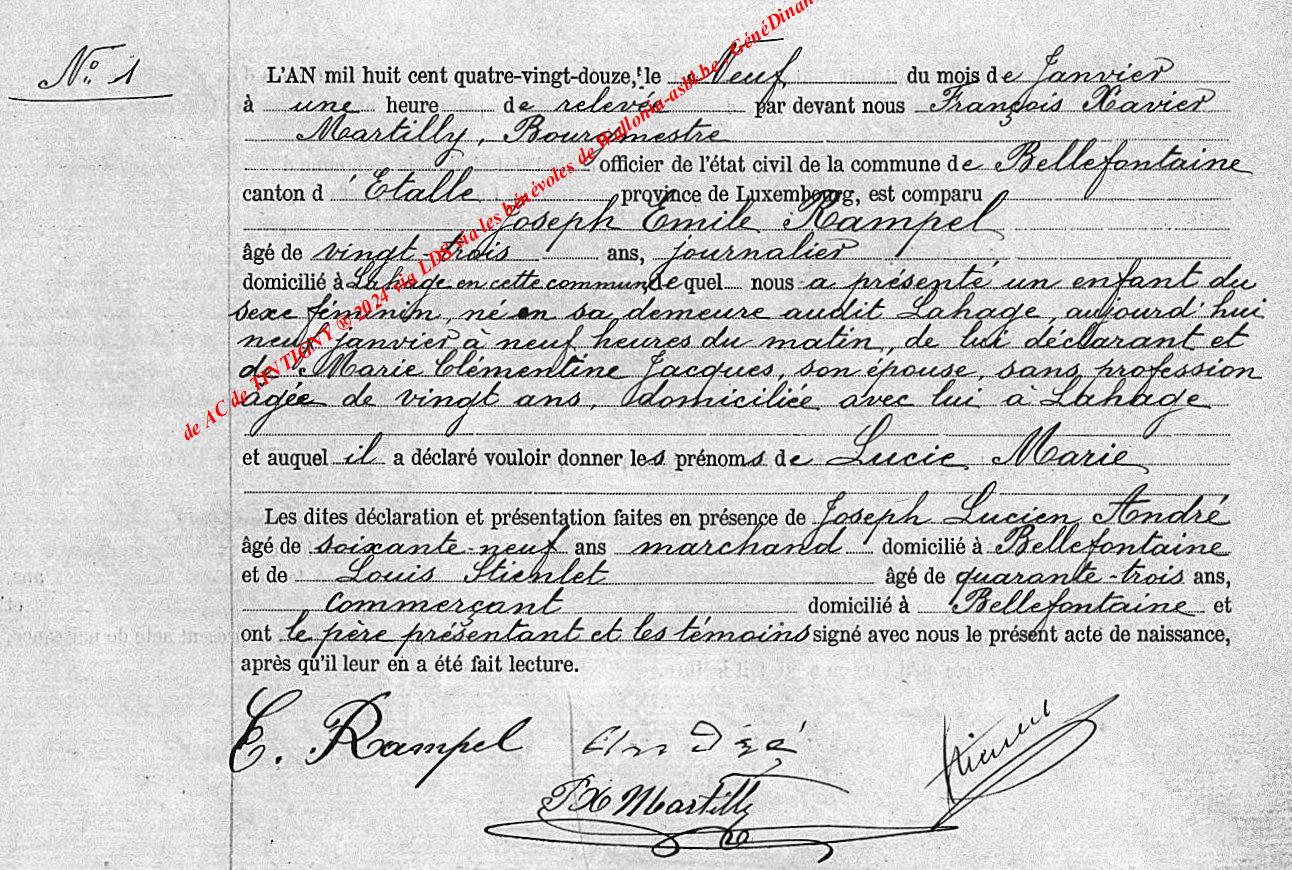 N° 1
L'AN mil huit cent quatre-vingt-douze, le Neuf du mois de Janvier
à une heure de relevée par devant nous François Xavier
Martilly, Bourgmestre
officier de l'état civil de la commune de Bellefontaine
canton d'Etalle province de Luxembourg, est comparu
Joseph Emile Rampel
âgé de vingt-trois ans, journalier
domicilié à Lahage en cette commune, lequel nous a présenté un enfant du
sexe féminin, né en sa demeure audit Lahage, aujourd'hui
neuf janvier à neuf heures du matin, de lui déclarant et
de Marie Clémentine Jacques, son épouse, sans profession
agée de vingt ans, domiciliée avec lui à Lahage
et auquel il a déclaré vouloir donner les prénoms de Lucie Marie
Les dites déclaration et présentation faites en présence de Joseph Lucien André
âgé de soixante-neuf ans marchand domicilié à Bellefontaine
et de Louis Stienlet âgé de quarante-trois ans,
commerçant domicilié à Bellefontaine et
ont le père présentant et les témoins signé avec nous le présent acte de naissance,
après qu'il leur en a été fait lecture.
E. Rampel André
FX Martilly
de AC de TINTIGNY ® 2024 via LDS via les bénévoles de Wallonia-asbl.be - GénéDinan